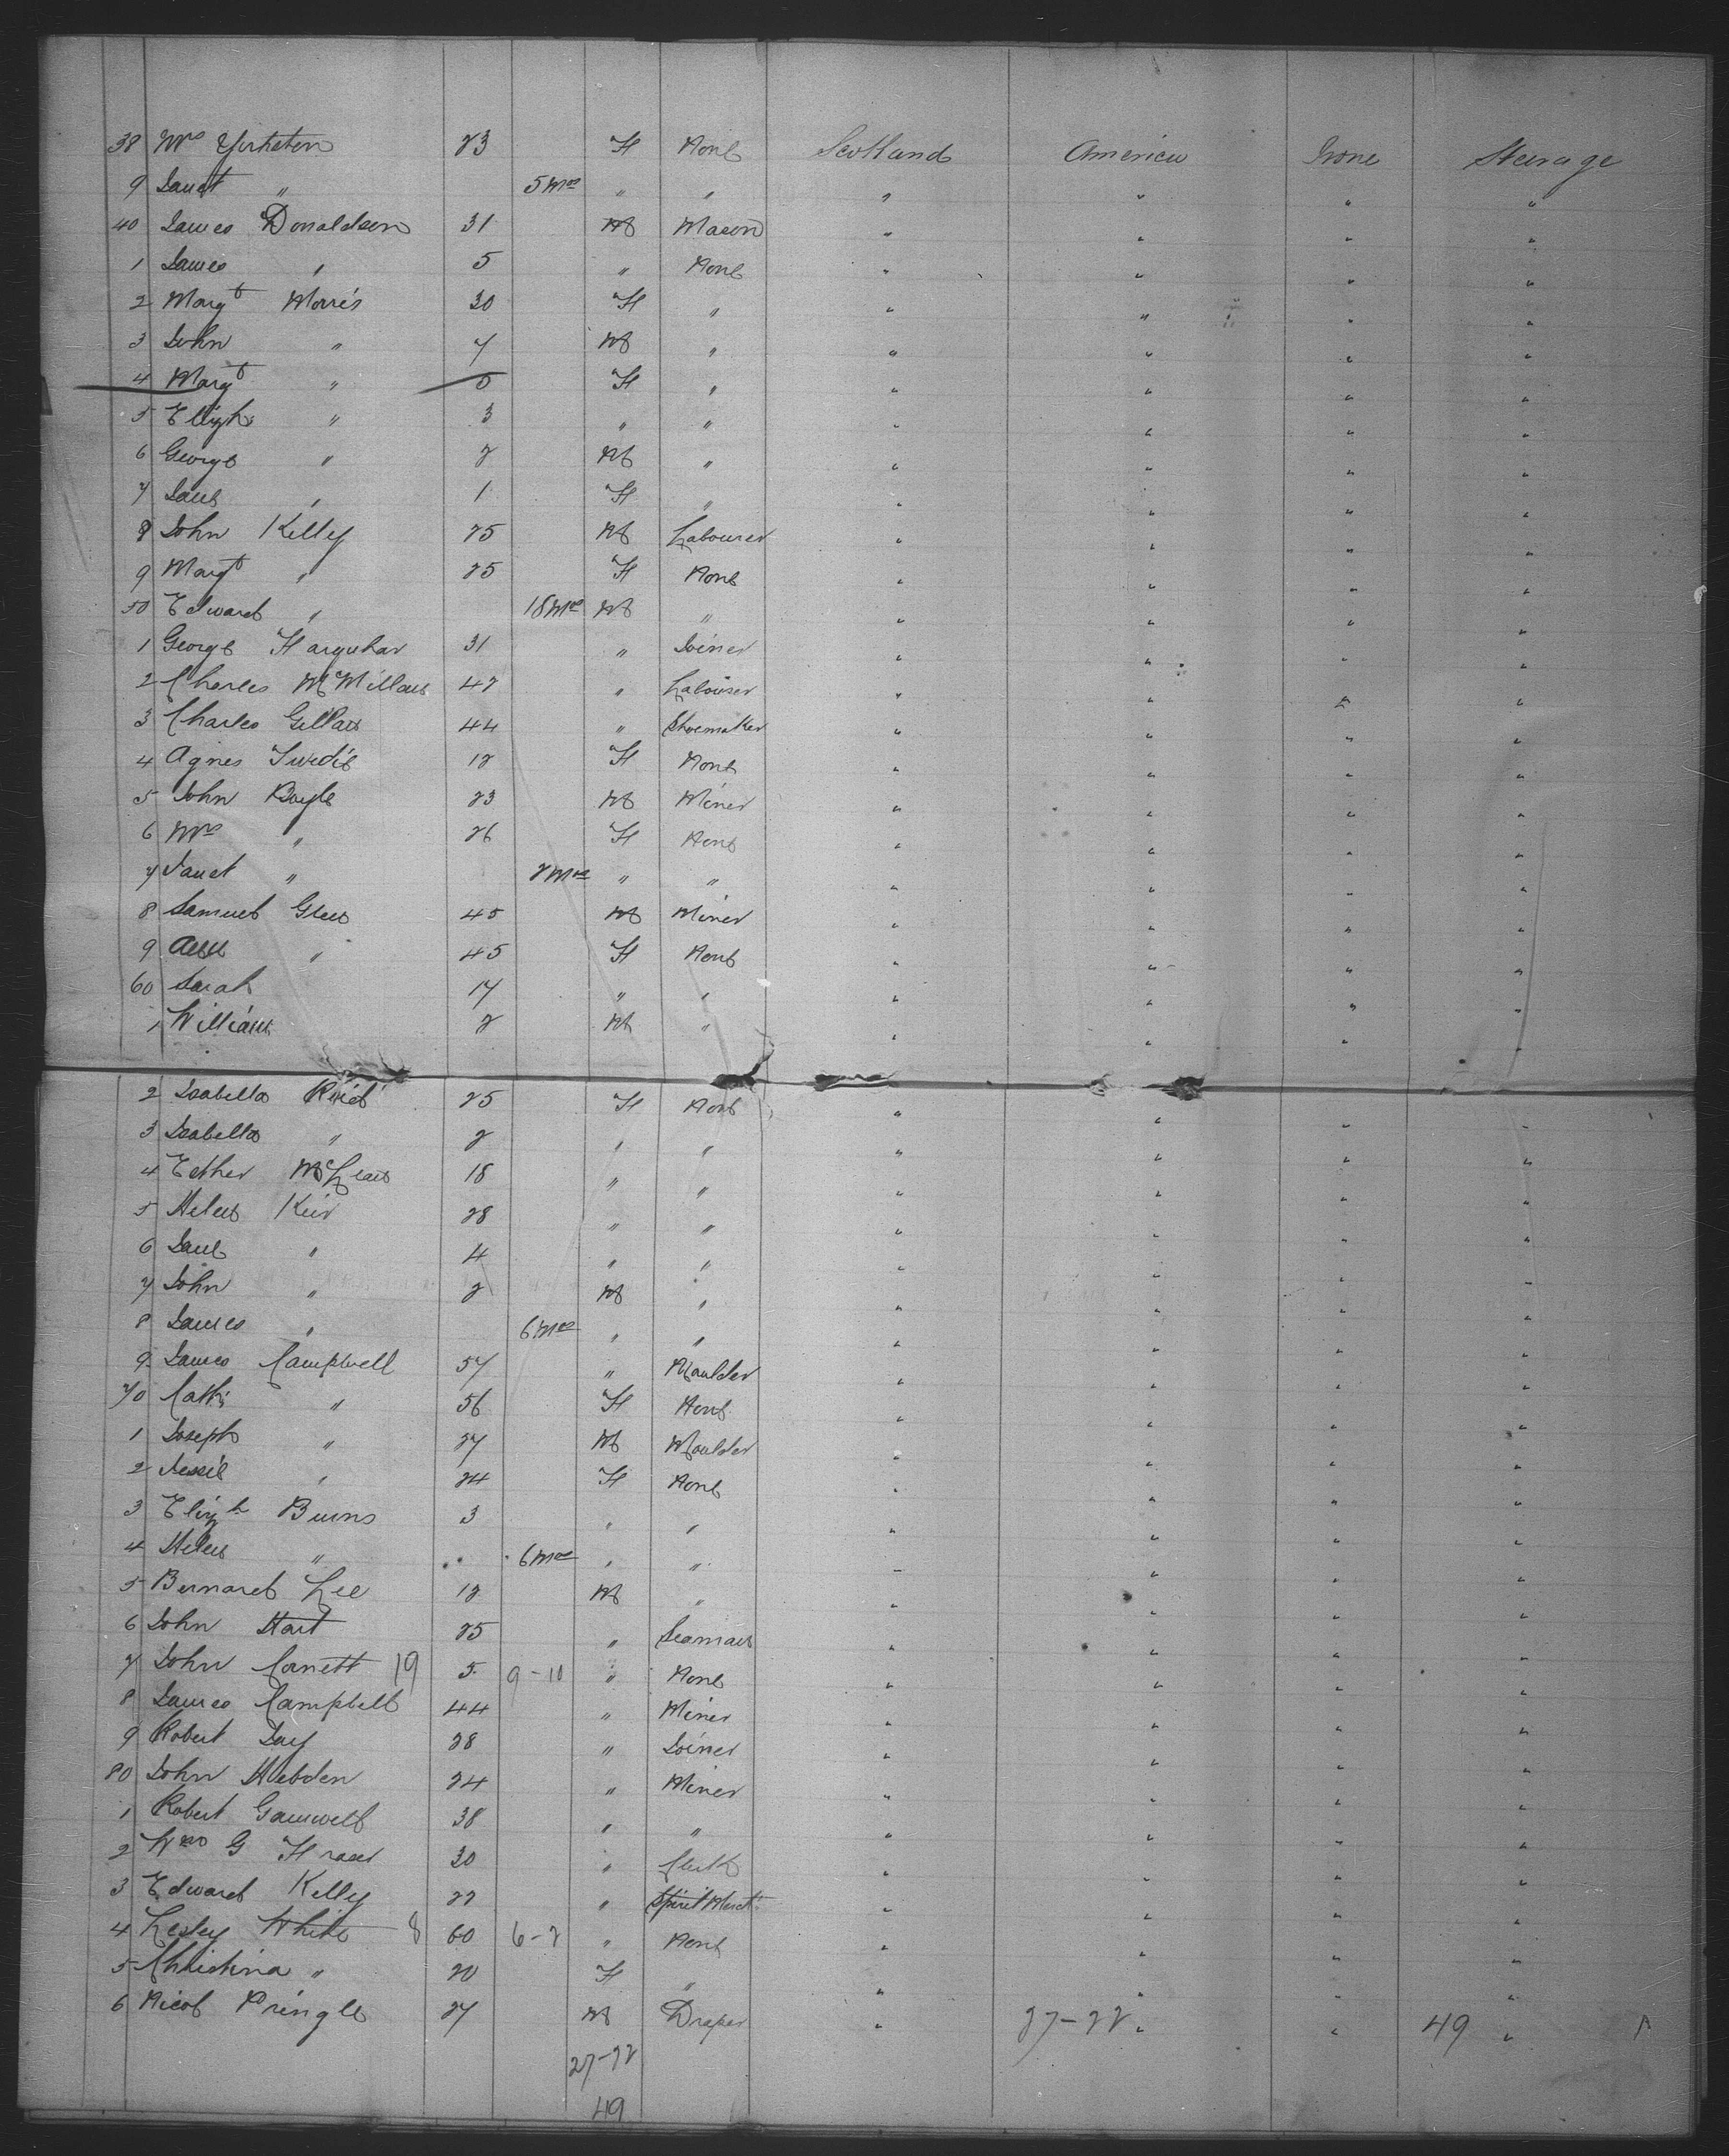 38 Mrs Yorkston 23 F None Scotland America None Steerage
9 Janet " 5 Mos " " " " " "
40 James Donaldson 31 M Mason " " " "
1 James " 5 " None " " " "
2 Margt Morris 30 F " " " " "
3 John " 7 M " " " " "
4 Margt " 5 F " " " " "
5 Elizh " 3 " " " " " "
6 George " 2 M " " " " "
7 Jane " 1 F " " " " "
8 John Kelly 25 M Labourer " " " "
9 Margt " 25 F None " " " "
50 Edward " 18 Mos M " " " " "
1 George Farquhar 31 " Joiner " " " "
2 Charles McMillan 42 " Labourer " " " "
3 Charles Gillan 44 " Shoemaker " " " "
4 Agnes 12 F None " " " "
5 John Boyle 23 M Miner " " " "
6 Mrs " 26 F None " " " "
7 Janet " 2 Mos " " " " " "
8 Samuel Glen 45 M Miner " " " "
9 " 45 F None " " " "
60 Sarah 17 " " " " " "
1 William 2 M " " " " "
2 Isabella Reid 25 F None " " " "
3 Isabella " 2 " " " " " "
4 Esther McLean 18 " " " " " "
5 Helen Keir 28 " " " " " "
6 Jane " 4 " " " " " "
7 John " 2 M " " " " "
8 James " 6 Mos " " " " " "
9 James Campbell 57 " Moulder " " " "
70 Cathi " 56 F None " " " "
1 Joseph " 27 M Moulder " " " "
2 Jessie " 24 F None " " " "
3 Elizh Burns 3 " " " " " "
4 Helen " 6 Mos " " " " " "
5 Bernard Lee 12 M " " " " "
6 John Hart 25 " Seaman " " " "
7 John Cornett 19 5 9-10 " None " " " "
8 James Campbell 44 " Miner " " " "
9 Robert Day 28 " Joiner " " " "
80 John Hebden 24 " Miner " " " "
1 Robert Gamwell 38 " " " " " "
2 Wm G Fraser 30 " Clerk " " " "
3 Edward Kelly 22 " Spirit Mercht " " " "
4 Lesley White 8 60 6-2 " None " " " "
5 Christina " 20 F " " " " "
6 Nicol Pringle 27 M Draper " 27-22 " " 49 "
27-22
49